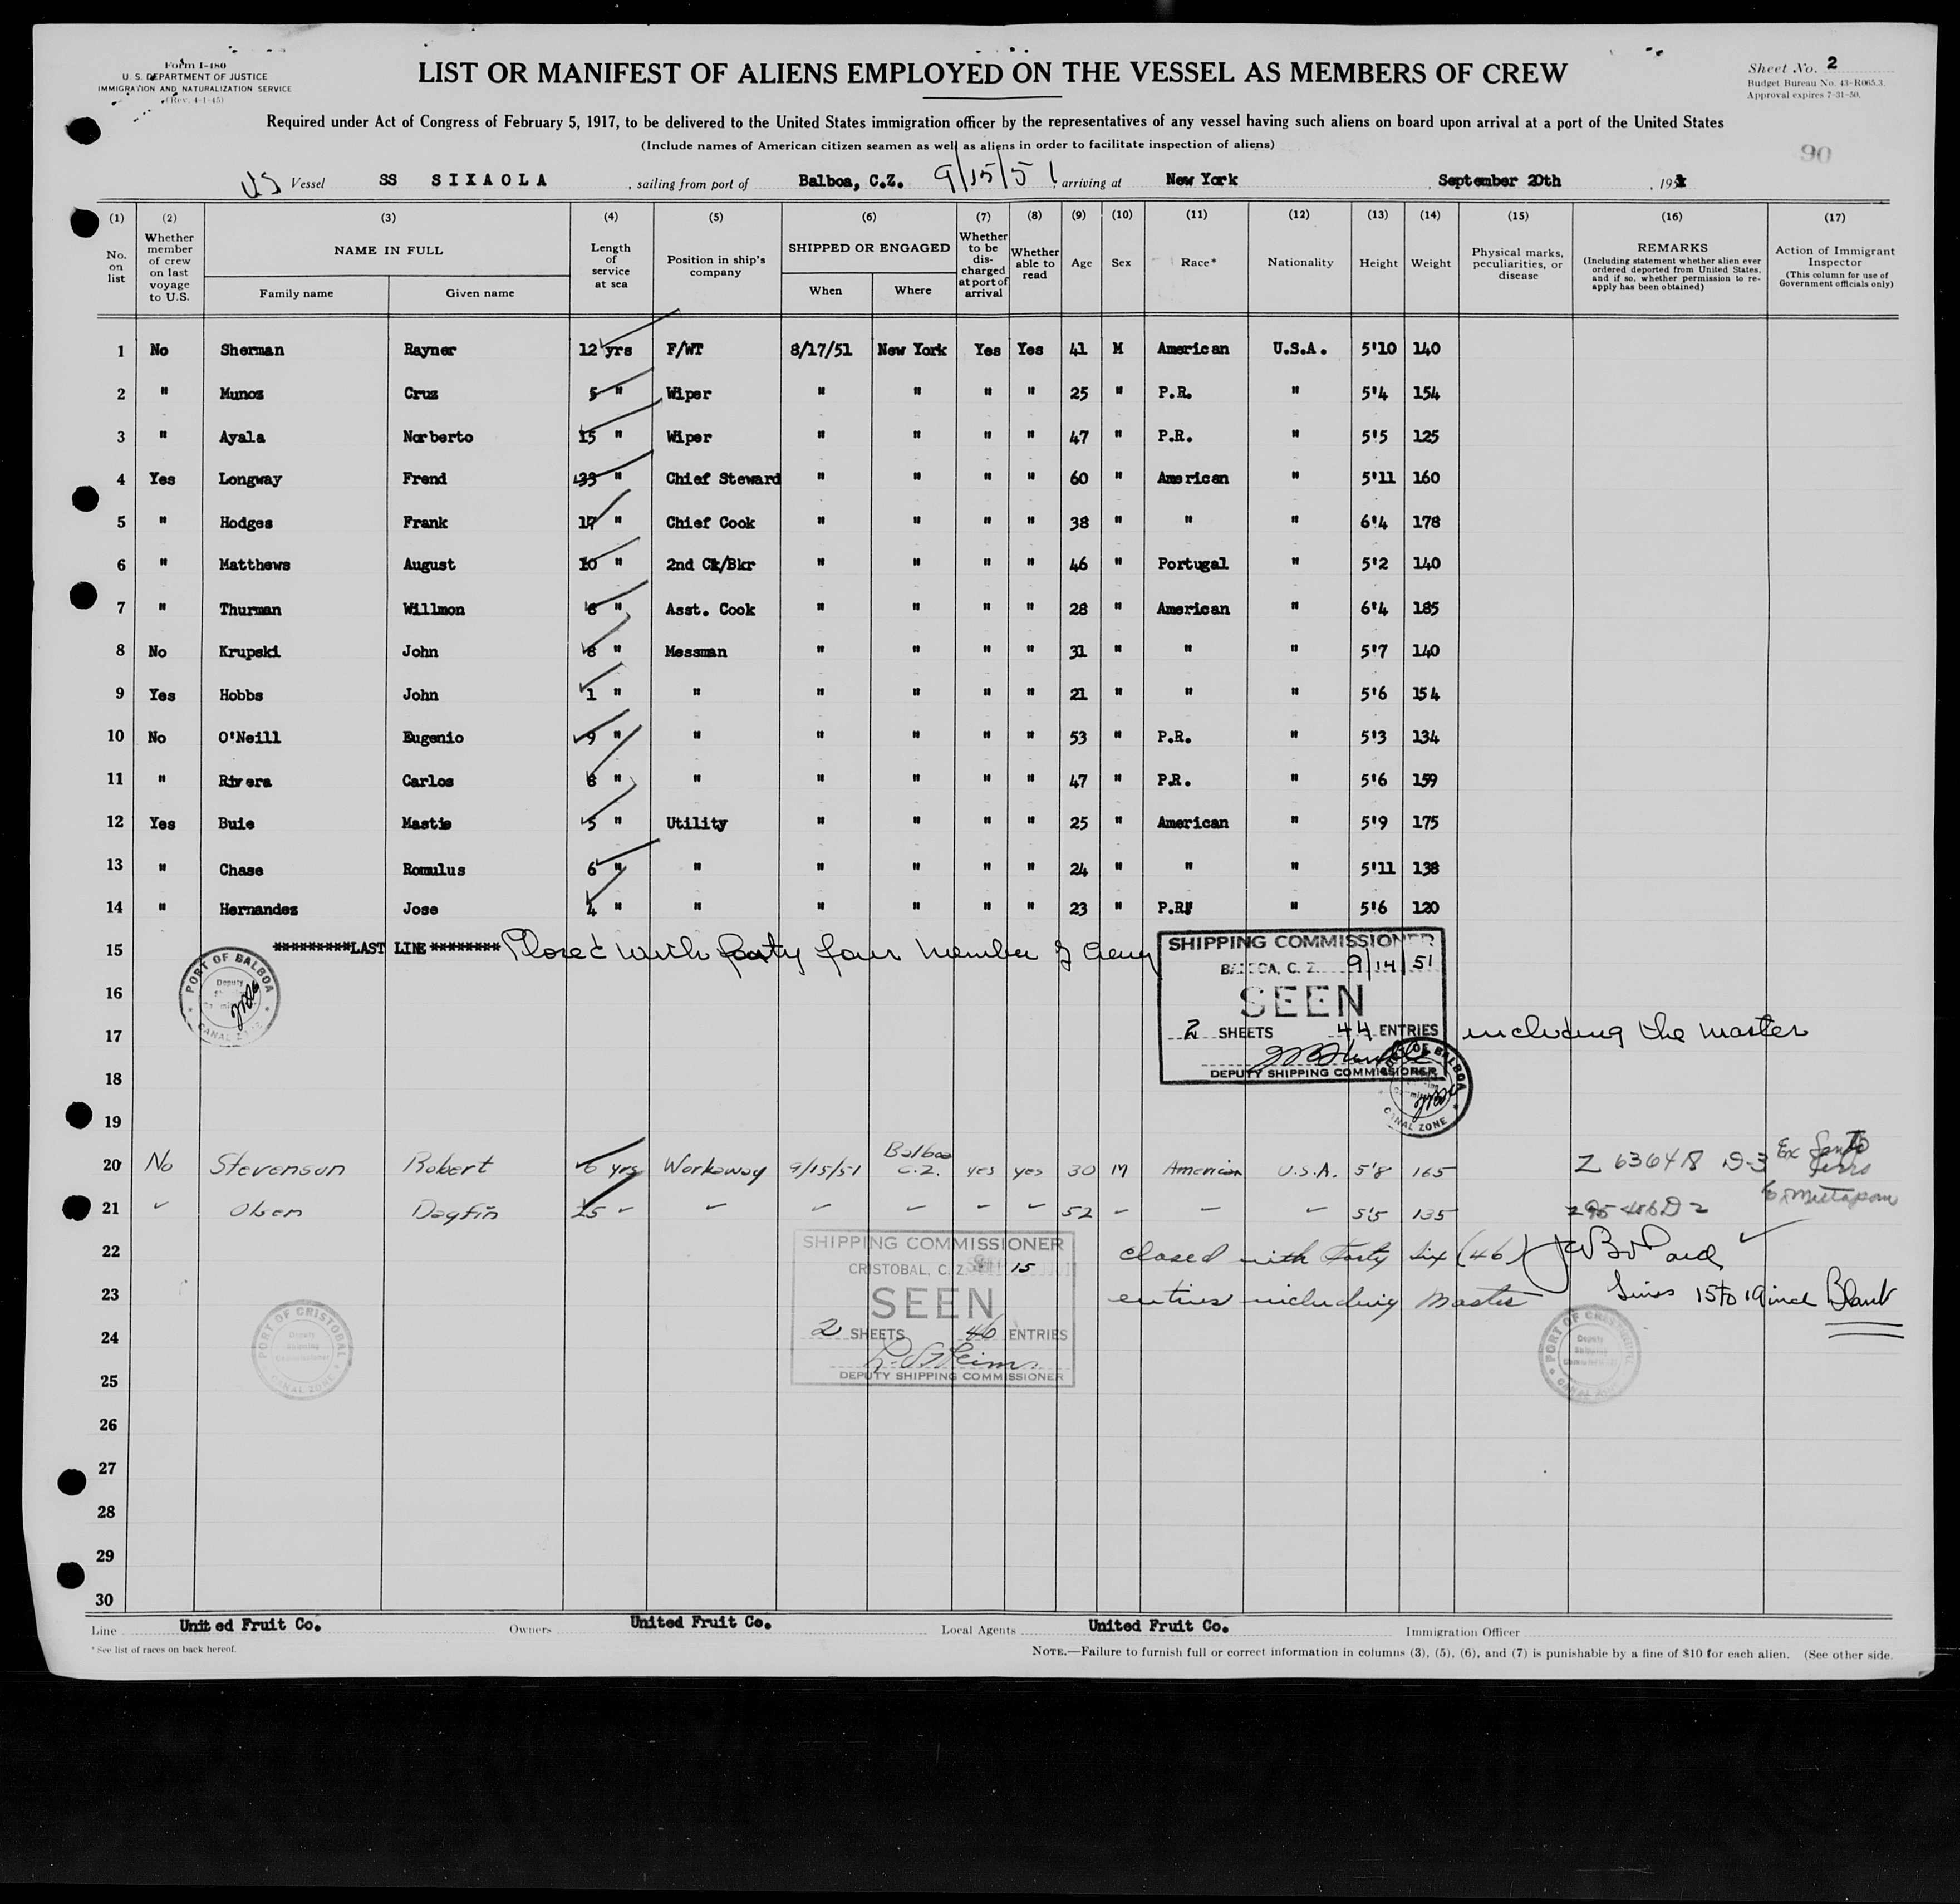 Form I-480
U. S. DEPARTMENT OF JUSTICE
IMMIGRATION AND NATURALIZATION SERVICE
(Rev. 4-1-45)
LIST OR MANIFEST OF ALIENS EMPLOYED ON THE VESSEL AS MEMBERS OF CREW
Sheet No. 2
Budget Bureau No. 43-R065.3.
Approval expires 7-31-50.
Required under Act of Congress of February 5, 1917, to be delivered to the United States immigration officer by the representatives of any vessel having such aliens on board upon arrival at a port of the United States
(Include names of American citizen seamen as well as aliens in order to facilitate inspection of aliens)
90
US Vessel SS SIXAOLA, sailing from port of Balboa, C.Z. 9/15/51, arriving at New York, September 20th, 195
(1) (2) (3) (4) (5) (6) (7) (8) (9) (10) (11) (12) (13) (14) (15) (16) (17)
No. on list
Whether member of crew on last voyage to U.S.
NAME IN FULL
Family name Given name
Length of service at sea
Position in ship's company
SHIPPED OR ENGAGED
When Where
Whether to be discharged at port of arrival
Whether able to read
Age
Sex
Race*
Nationality
Height
Weight
Physical marks, peculiarities, or disease
REMARKS
(Including statement whether alien ever ordered deported from United States, and if so, whether permission to reapply has been obtained)
Action of Immigrant Inspector
(This column for use of Government officials only)
1 No Sherman Rayner 12 yrs F/WT 8/17/51 New York Yes Yes 41 M American U.S.A. 5'10 140
2 " Munoz Cruz 5 " Wiper " " " " 25 " P.R. " 5'4 154
3 " Ayala Norberto 15 " Wiper " " " " 47 " P.R. " 5'5 125
4 Yes Longway Frend 33 " Chief Steward " " " " 60 " American " 5'11 160
5 " Hodges Frank 17 " Chief Cook " " " " 38 " " " 6'4 178
6 " Matthews August 10 " 2nd Ck/Bkr " " " " 46 " Portugal " 5'2 140
7 " Thurman Willmon 6 " Asst. Cook " " " " 28 " American " 6'4 185
8 No Krupski John 8 " Messman " " " " 31 " " " 5'7 140
9 Yes Hobbs John 1 " " " " " " 21 " " " 5'6 154
10 No O'Neill Eugenio 9 " " " " " " 53 " P.R. " 5'3 134
11 " Rivera Carlos 8 " " " " " " 47 " P.R. " 5'6 159
12 Yes Buie Mastie 5 " Utility " " " " 25 " American " 5'9 175
13 " Chase Romulus 6 " " " " " " 24 " " " 5'11 138
14 " Hernandez Jose 4 " " " " " " 23 " P.R. " 5'6 120
15 *********LAST LINE******** Closed with forty four member of crew
SHIPPING COMMISSIONER
BALBOA, C. Z. 9/14/51
SEEN
2 SHEETS 44 ENTRIES including the master
DEPUTY SHIPPING COMMISSIONER
PORT OF BALBOA
Deputy
CANAL ZONE
PORT OF BALBOA
CANAL ZONE
16
17
18
19
20 No Stevenson Robert 6 yrs Workaway 9/15/51 Balboa C.Z. yes yes 30 M American U.S.A. 5'8 165 Z 636418 D-3 Ex
21 Olsen Dagfin 25 52 5'5 135 Ex Metapan
22 closed with Forty Six (46)
23 entries including Master
Lines 15 to 19 incl Blank
SHIPPING COMMISSIONER
CRISTOBAL, C. Z. 15
SEEN
2 SHEETS 46 ENTRIES
DEPUTY SHIPPING COMMISSIONER
PORT OF CRISTOBAL
Deputy
Shipping
Commissioner
CANAL ZONE
PORT OF CRISTOBAL
Deputy
Shipping
Commissioner
CANAL ZONE
24
25
26
27
28
29
30
Line United Fruit Co. Owners United Fruit Co. Local Agents United Fruit Co. Immigration Officer
*See list of races on back hereof.
NOTE.—Failure to furnish full or correct information in columns (3), (5), (6), and (7) is punishable by a fine of $10 for each alien. (See other side.